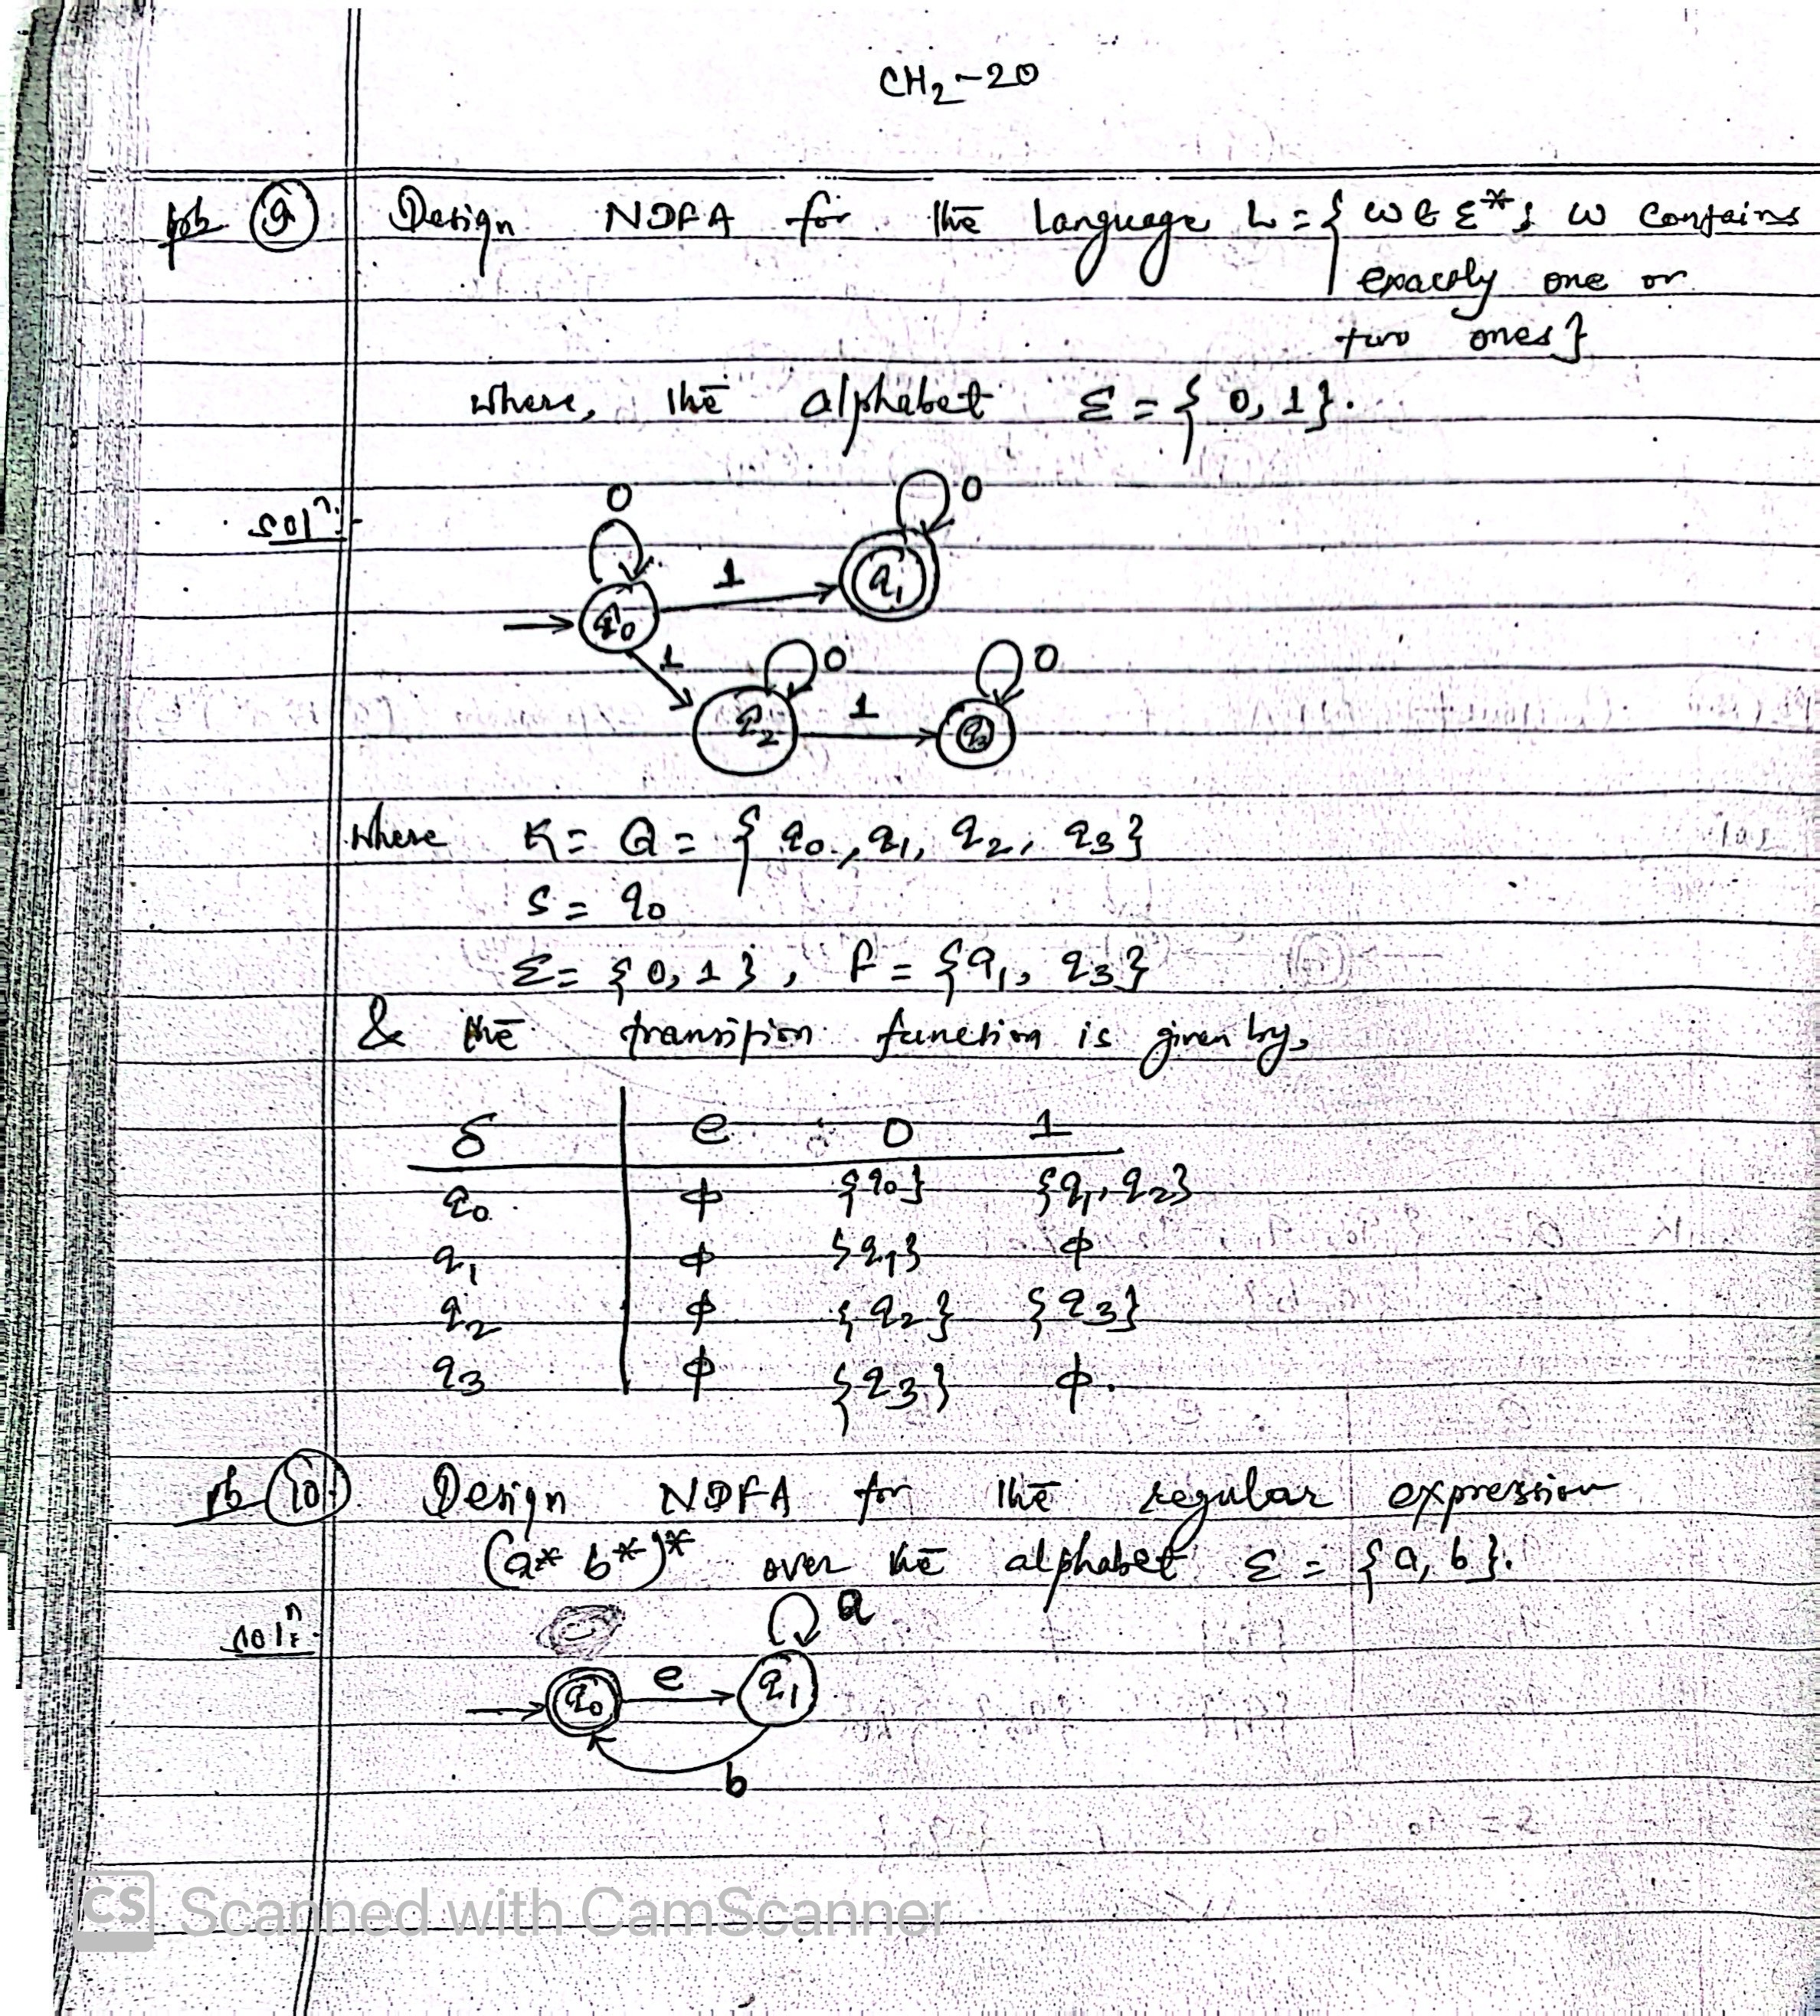 CH2-20
pb. 9. Design NDFA for the Language L = { w ∈ Σ* ; w contains
exactly one or
two ones }
where, the alphabet Σ = { 0, 1 }.
solⁿ:
0 0
1 q1
q0
1 0 0
q2 1 q3
where K = Q = { q0, q1, q2, q3 }
S = q0
Σ = { 0, 1 }, F = { q1, q3 }
& the transition function is given by,
δ e 0 1
q0 ϕ {q0} {q1, q2}
q1 ϕ {q1} ϕ
q2 ϕ {q2} {q3}
q3 ϕ {q3} ϕ.
pb 10. Design NDFA for the regular expression
(a* b*)* over the alphabet Σ = { a, b }.
solⁿ: a
q0 e q1
b
CS Scanned with CamScanner